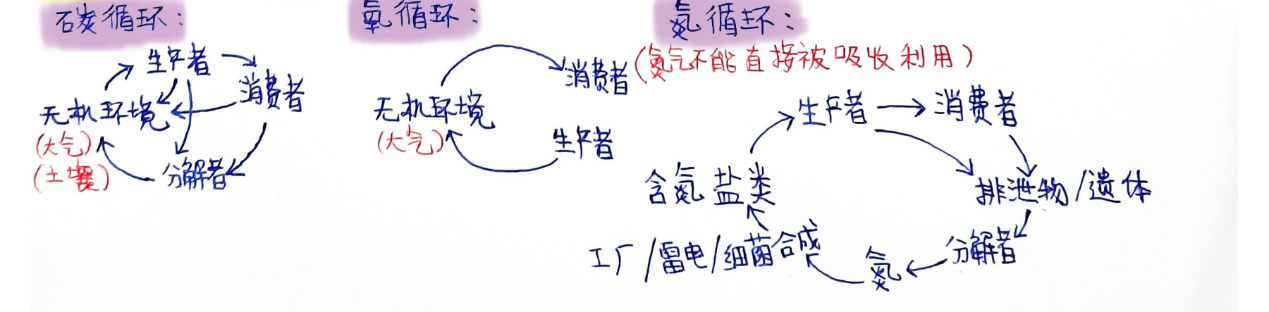 碳循环:
生产者
消费者
无机环境
(大气)
(土壤)
分解者
氧循环:
消费者
无机环境
(大气)
生产者
氮循环:
(氮气不能直接被吸收利用)
生产者
消费者
含氮盐类
排泄物/遗体
工厂/雷电/细菌合成
氮
分解者